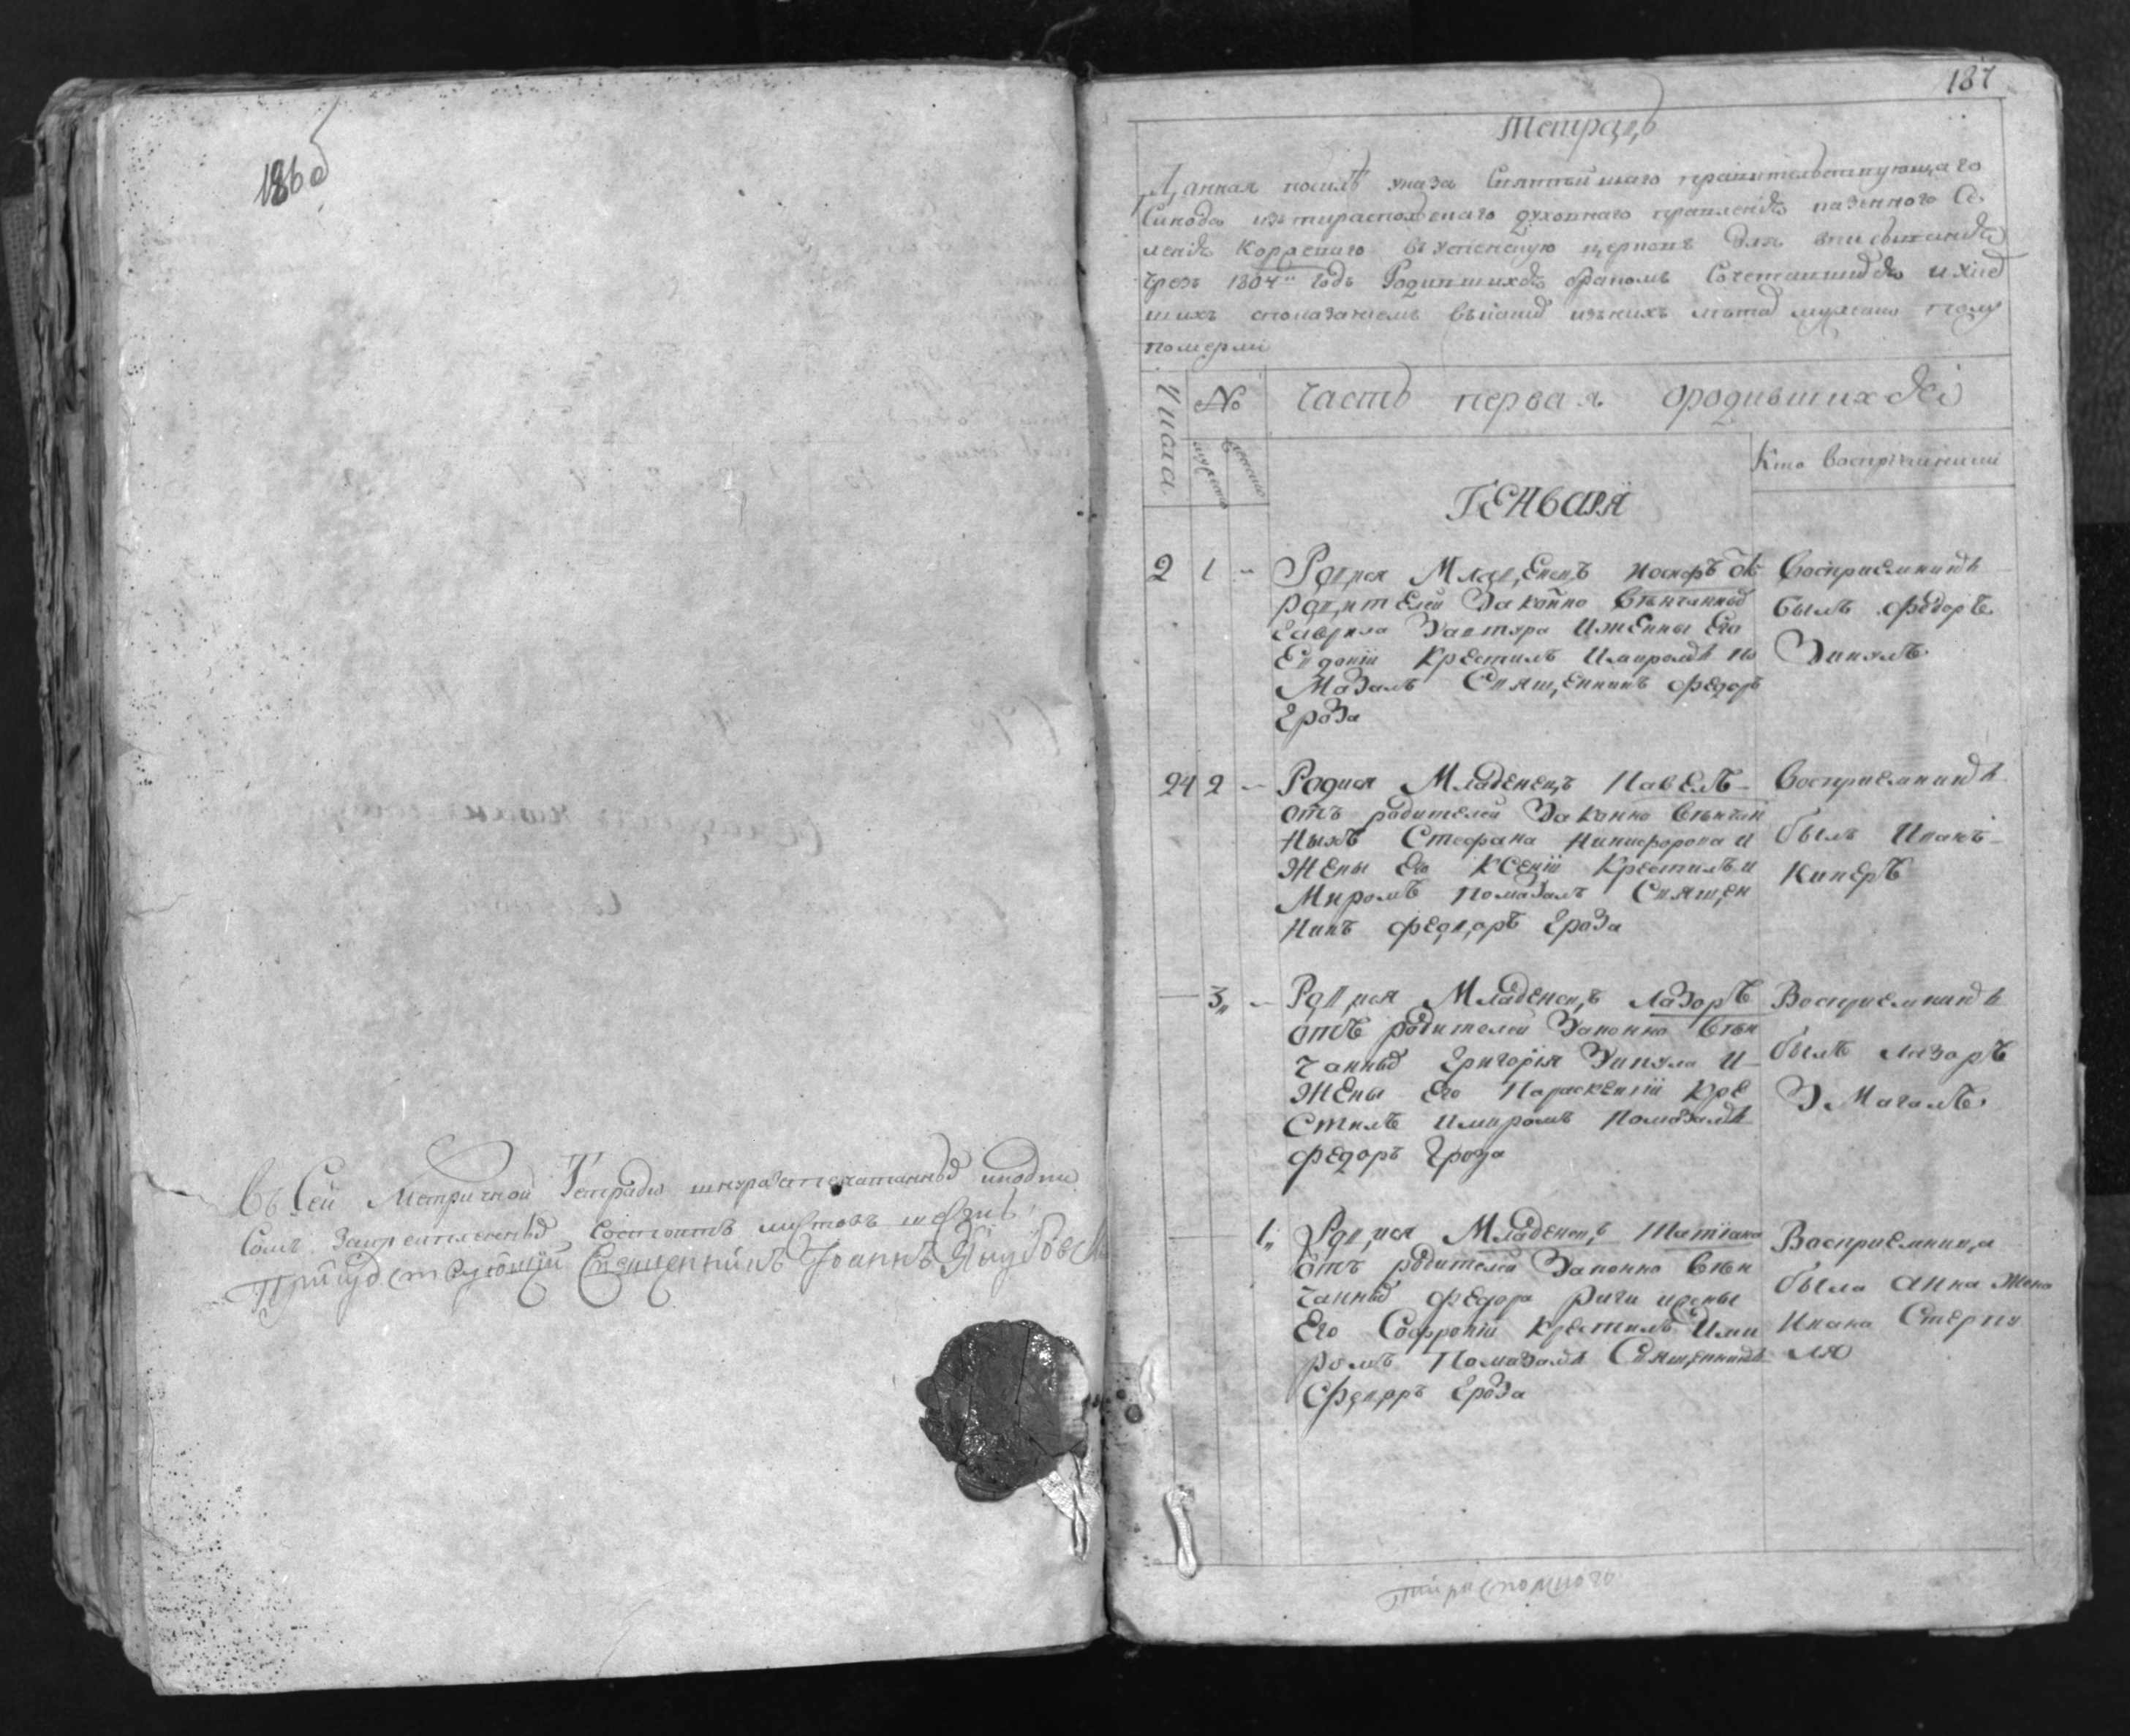 186 об
Въ Сей Метричной Тетради шнурозапечатанныхъ и подпи
сомъ Закрепленныхъ Состоитъ листовъ
Присудствующій Священникъ Іоаннъ
187
Тетрадь
Данная посилѣ указа Святейшаго правительствующаго
Синода изъ тираспольскаго духовнаго правленія казенного Се
ленія Коррского въ успенскую церковь для вписыванія
чрезъ 1804й годъ Родившихся бракомъ Сочетавшихся и
шихъ спокаЗаніемъ изъ нихъ лѣта мужеска полу
померли
Числа
№
часть первая ородившихся
мужеска
женска
Кто воспріемники
ГЕНваря
2 1 Родися Младенецъ Иосифъ отъ
родителей Законно Венчанныхъ
Гаврила Хаптура ИжЕнны Его
Евдокіи Крестилъ Имиромъ по
МаЗалъ Священникъ Федоръ
ГроЗа
Восприемникъ
былъ Федоръ
24 2 Родися Младенецъ ПавЕлъ
отъ родителей Законно Венчан
ныхъ Стефана Никифорова и
ЖЕны Его КСЕніи Крестилъ и
Миромъ помаЗалъ Священ
никъ Федоръ ГроЗа
Восприемникъ
былъ Иванъ
КипЕръ
3 Родися Младенецъ ЛаЗоръ
отъ родителей Законно Вен
чанныхъ Григорія и
ЖЕны Его Параскевіи Кре
Стилъ Имиромъ ПомаЗалъ
Федоръ Гроза
Восприемникъ
былъ ЛаЗоръ
1 Родися Младенецъ Татіана
отъ родителей Законно Вен
чанныхъ Федора и жены
Его Софроніи Крестилъ Ими
ромъ ПомаЗалъ Священникъ
Федоръ ГроЗа
Восприемница
была Анна Жена
Ивана Стерпу
ля